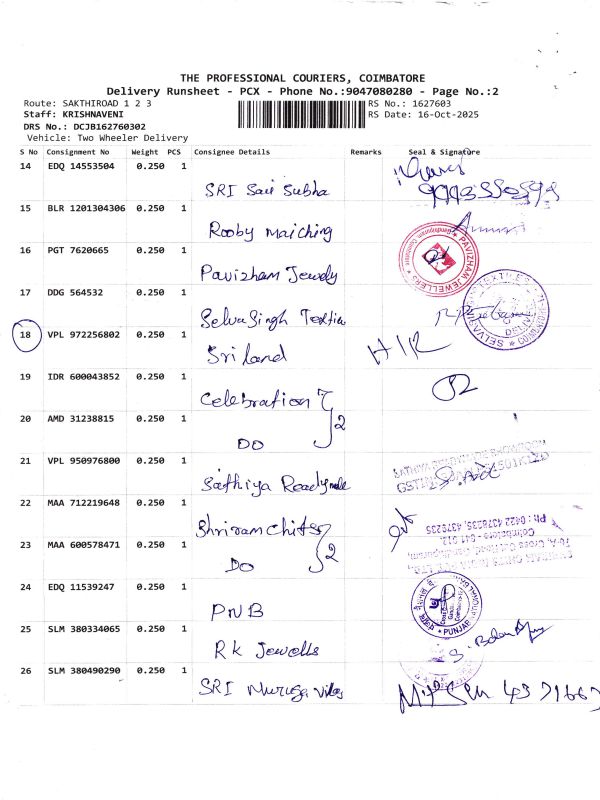 THE PROFESSIONAL COURIERS, COIMBATORE
Delivery Runsheet - PCX - Phone No.:9047080280 - Page No.:2
Route: SAKTHIROAD 1 2 3
Staff: KRISHNAVENI
DRS No.: DCJB162760302
Vehicle: Two Wheeler Delivery
RS No.: 1627603
RS Date: 16-Oct-2025
S No Consignment No Weight PCS Consignee Details Remarks Seal & Signature
14 EDQ 14553504 0.250 1
SRI Sai Subha
15 BLR 1201304306 0.250 1
Rooby Maiching
16 PGT 7620665 0.250 1
Pavizham Jewely
PAVIZHAM JEWELLERY
17 DDG 564532 0.250 1
Selvasingh Textiles
18 VPL 972256802 0.250 1
Sri land
19 IDR 600043852 0.250 1
Celebration
20 AMD 31238815 0.250 1
DO 2
21 VPL 950976800 0.250 1
Sathiya Readymade
22 MAA 712219648 0.250 1
Shriram Chits
Ph : 0422 4378235, 4379235
Coimbatore - 641 012.
23 MAA 600578471 0.250 1
DO 2
24 EDQ 11539247 0.250 1
PNB
25 SLM 380334065 0.250 1
RK Jewells
26 SLM 380490290 0.250 1
SRI Muruga Vilas